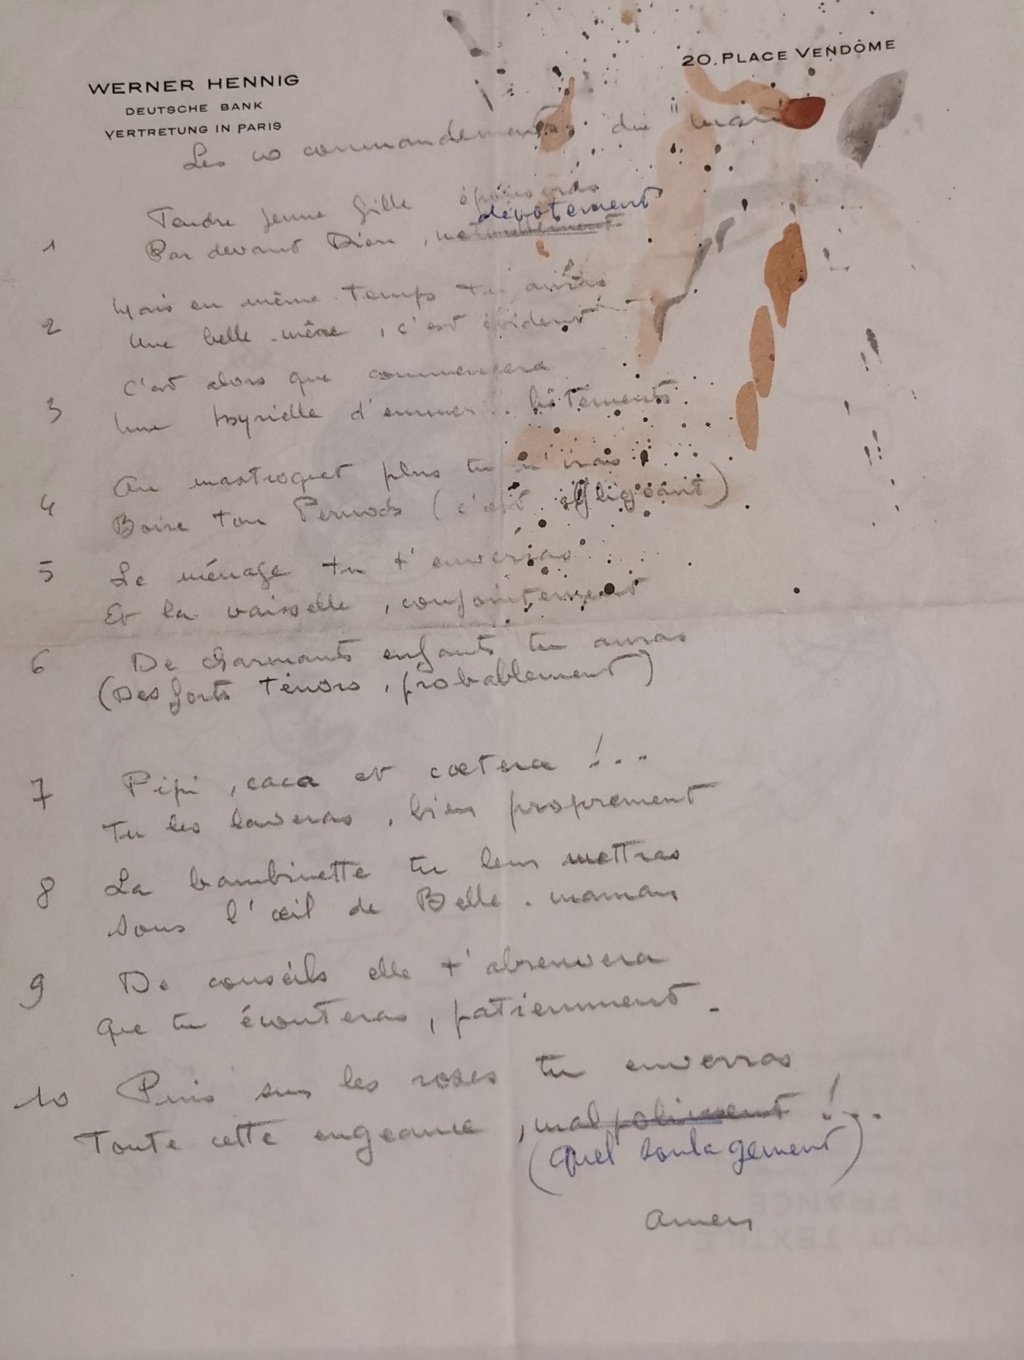 WERNER HENNIG
DEUTSCHE BANK
VERTRETUNG IN PARIS
20, PLACE VENDÔME
Les 10 commandements du "mari"
Tendre jeune fille épouseras
dévotement
1 Par devant Dieu, naturellement
Mais en même temps tu auras
2 Une belle-mère, c'est évident
C'est alors que commencera
3 Une kyrielle d'emmer.. bêtements
Au mastroquet plus tu n'iras
4 Boire ton Pernods (c'est affligeant)
5 Le ménage tu t'enverras
Et la vaisselle, conjointement
6 De charmants enfants tu auras
(Des forts Ténors, probablement)
7 Pipi, caca et cætera !...
Tu les laveras, bien proprement
8 La bambinette tu leur mettras
Sous l'œil de Belle-maman
9 De conseils elle t'abreuvera
Que tu écouteras, patiemment.
10 Puis sur les roses tu enverras
Toute cette engeance, malpoliment !..
(Quel soulagement)
Amen
DE FRANCE
TEXTILE